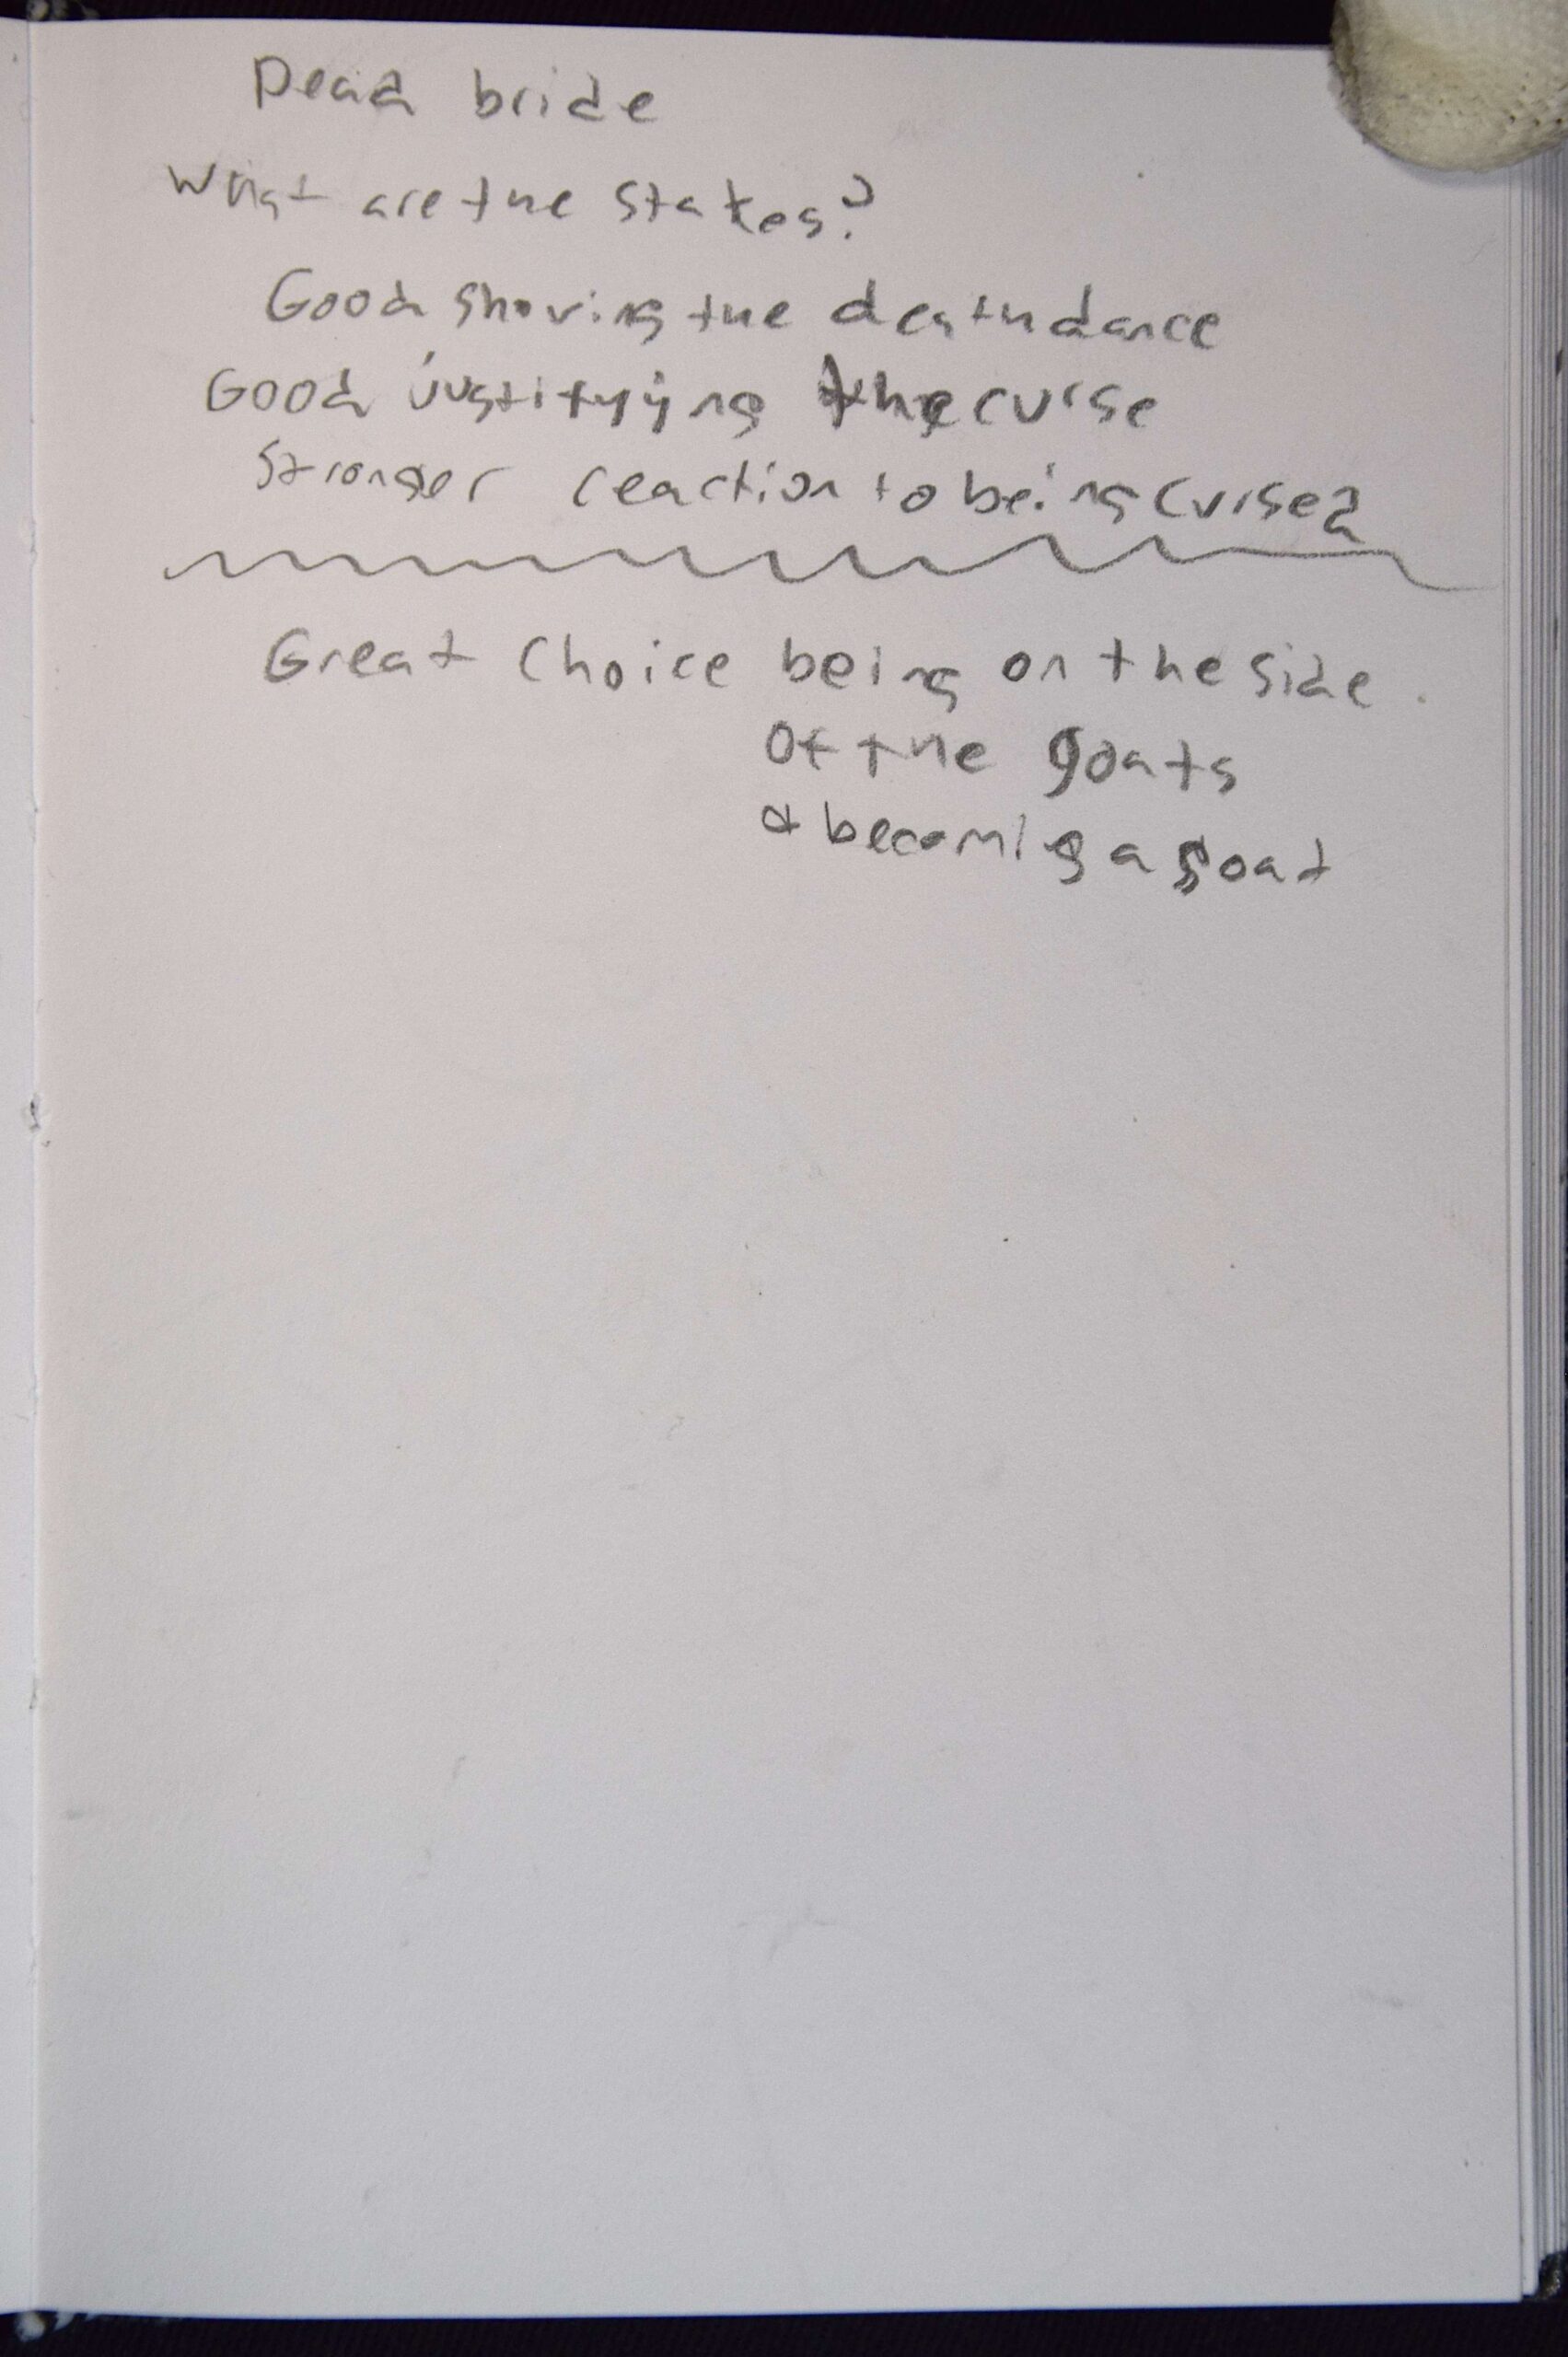 Dead bride
What are the stakes?
Good showing the death dance
Good justifying the curse
Stronger reaction to being cursed
Great choice being on the side
of the goats
& becomig a goat